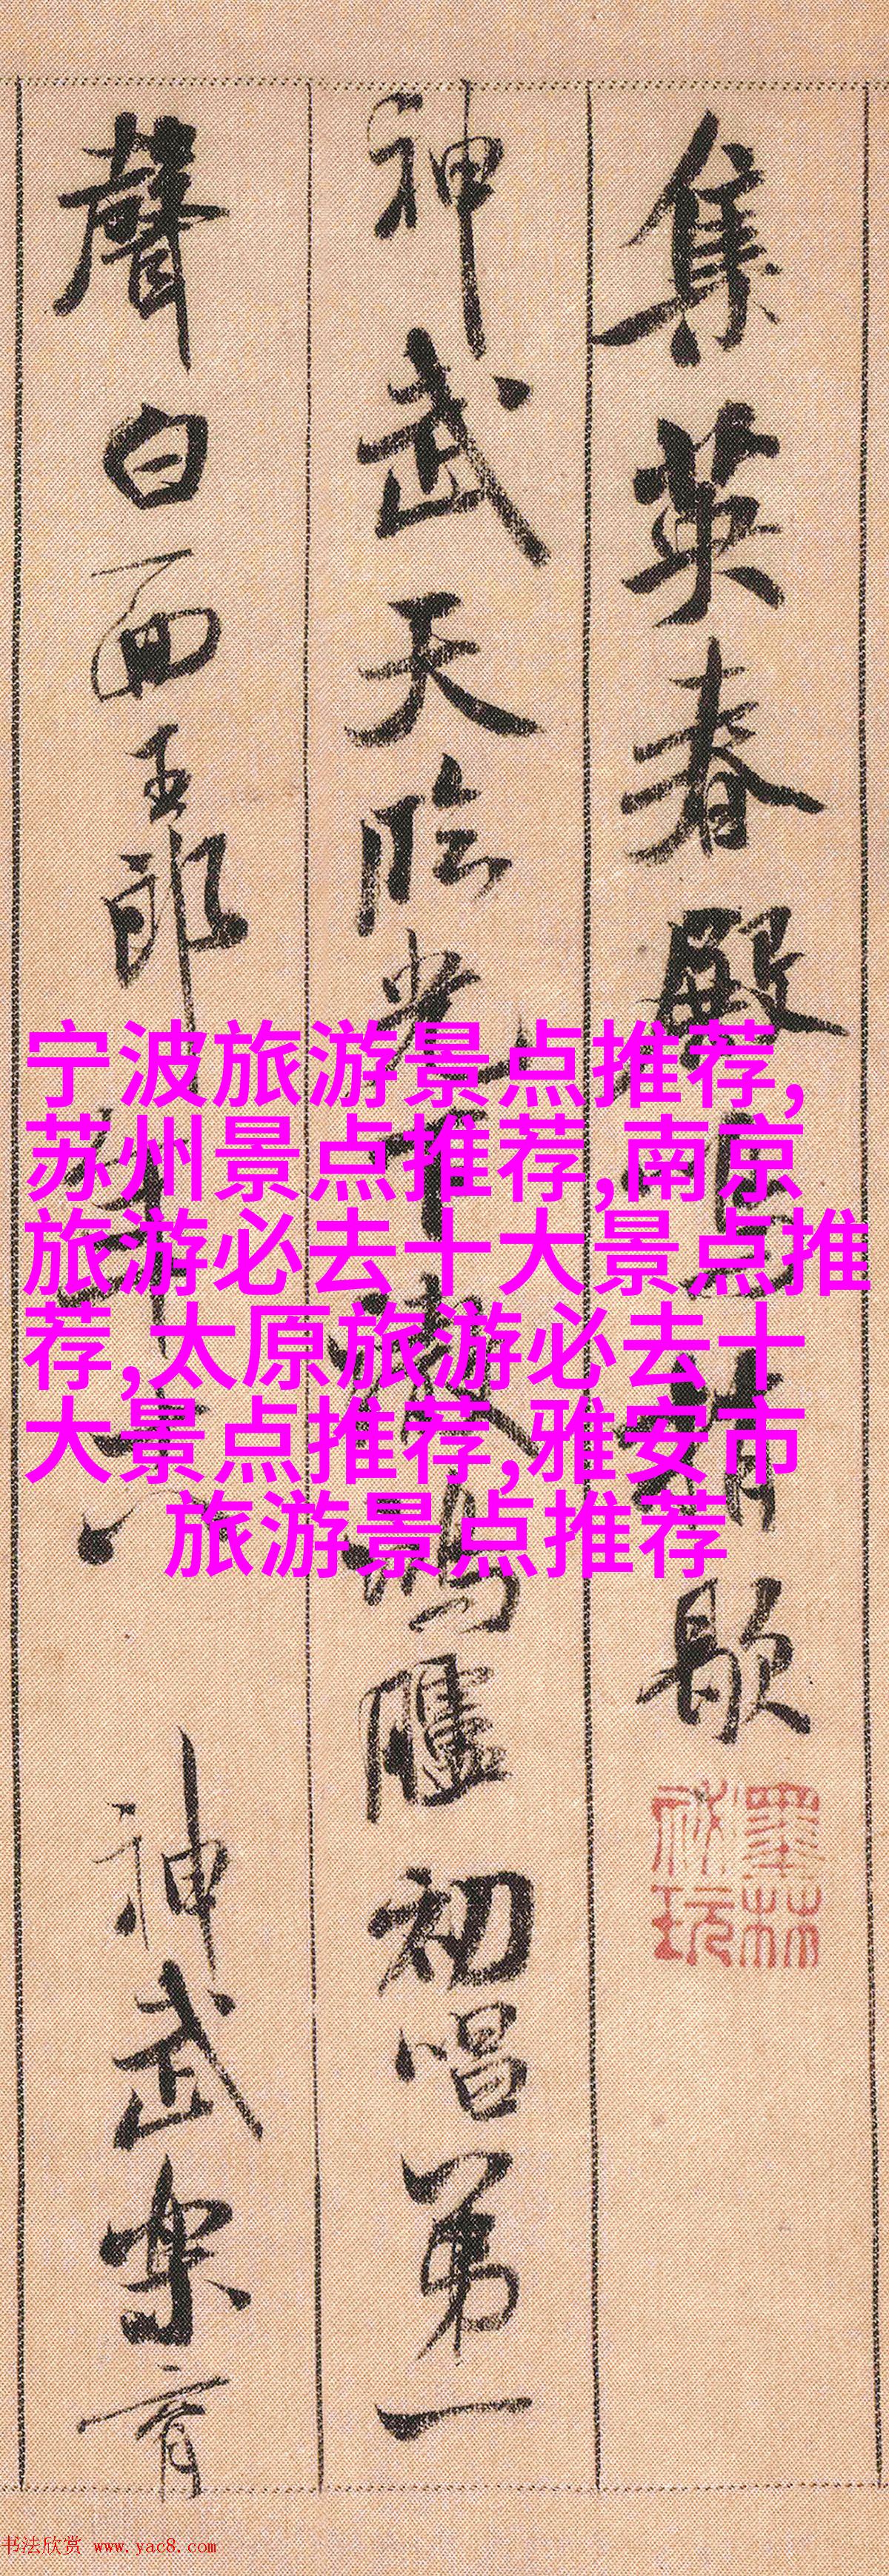 集英春殿鳴梢歇
神武天臨光下澈鴻臚初唱弟一
聲白面王郎年十八 神武樂育
墨林
祕玩
宁波旅游景点推荐,
苏州景点推荐,南京
旅游必去十大景点推
荐,太原旅游必去十
大景点推荐,雅安市
旅游景点推荐
书法欣赏 www.yac8.com